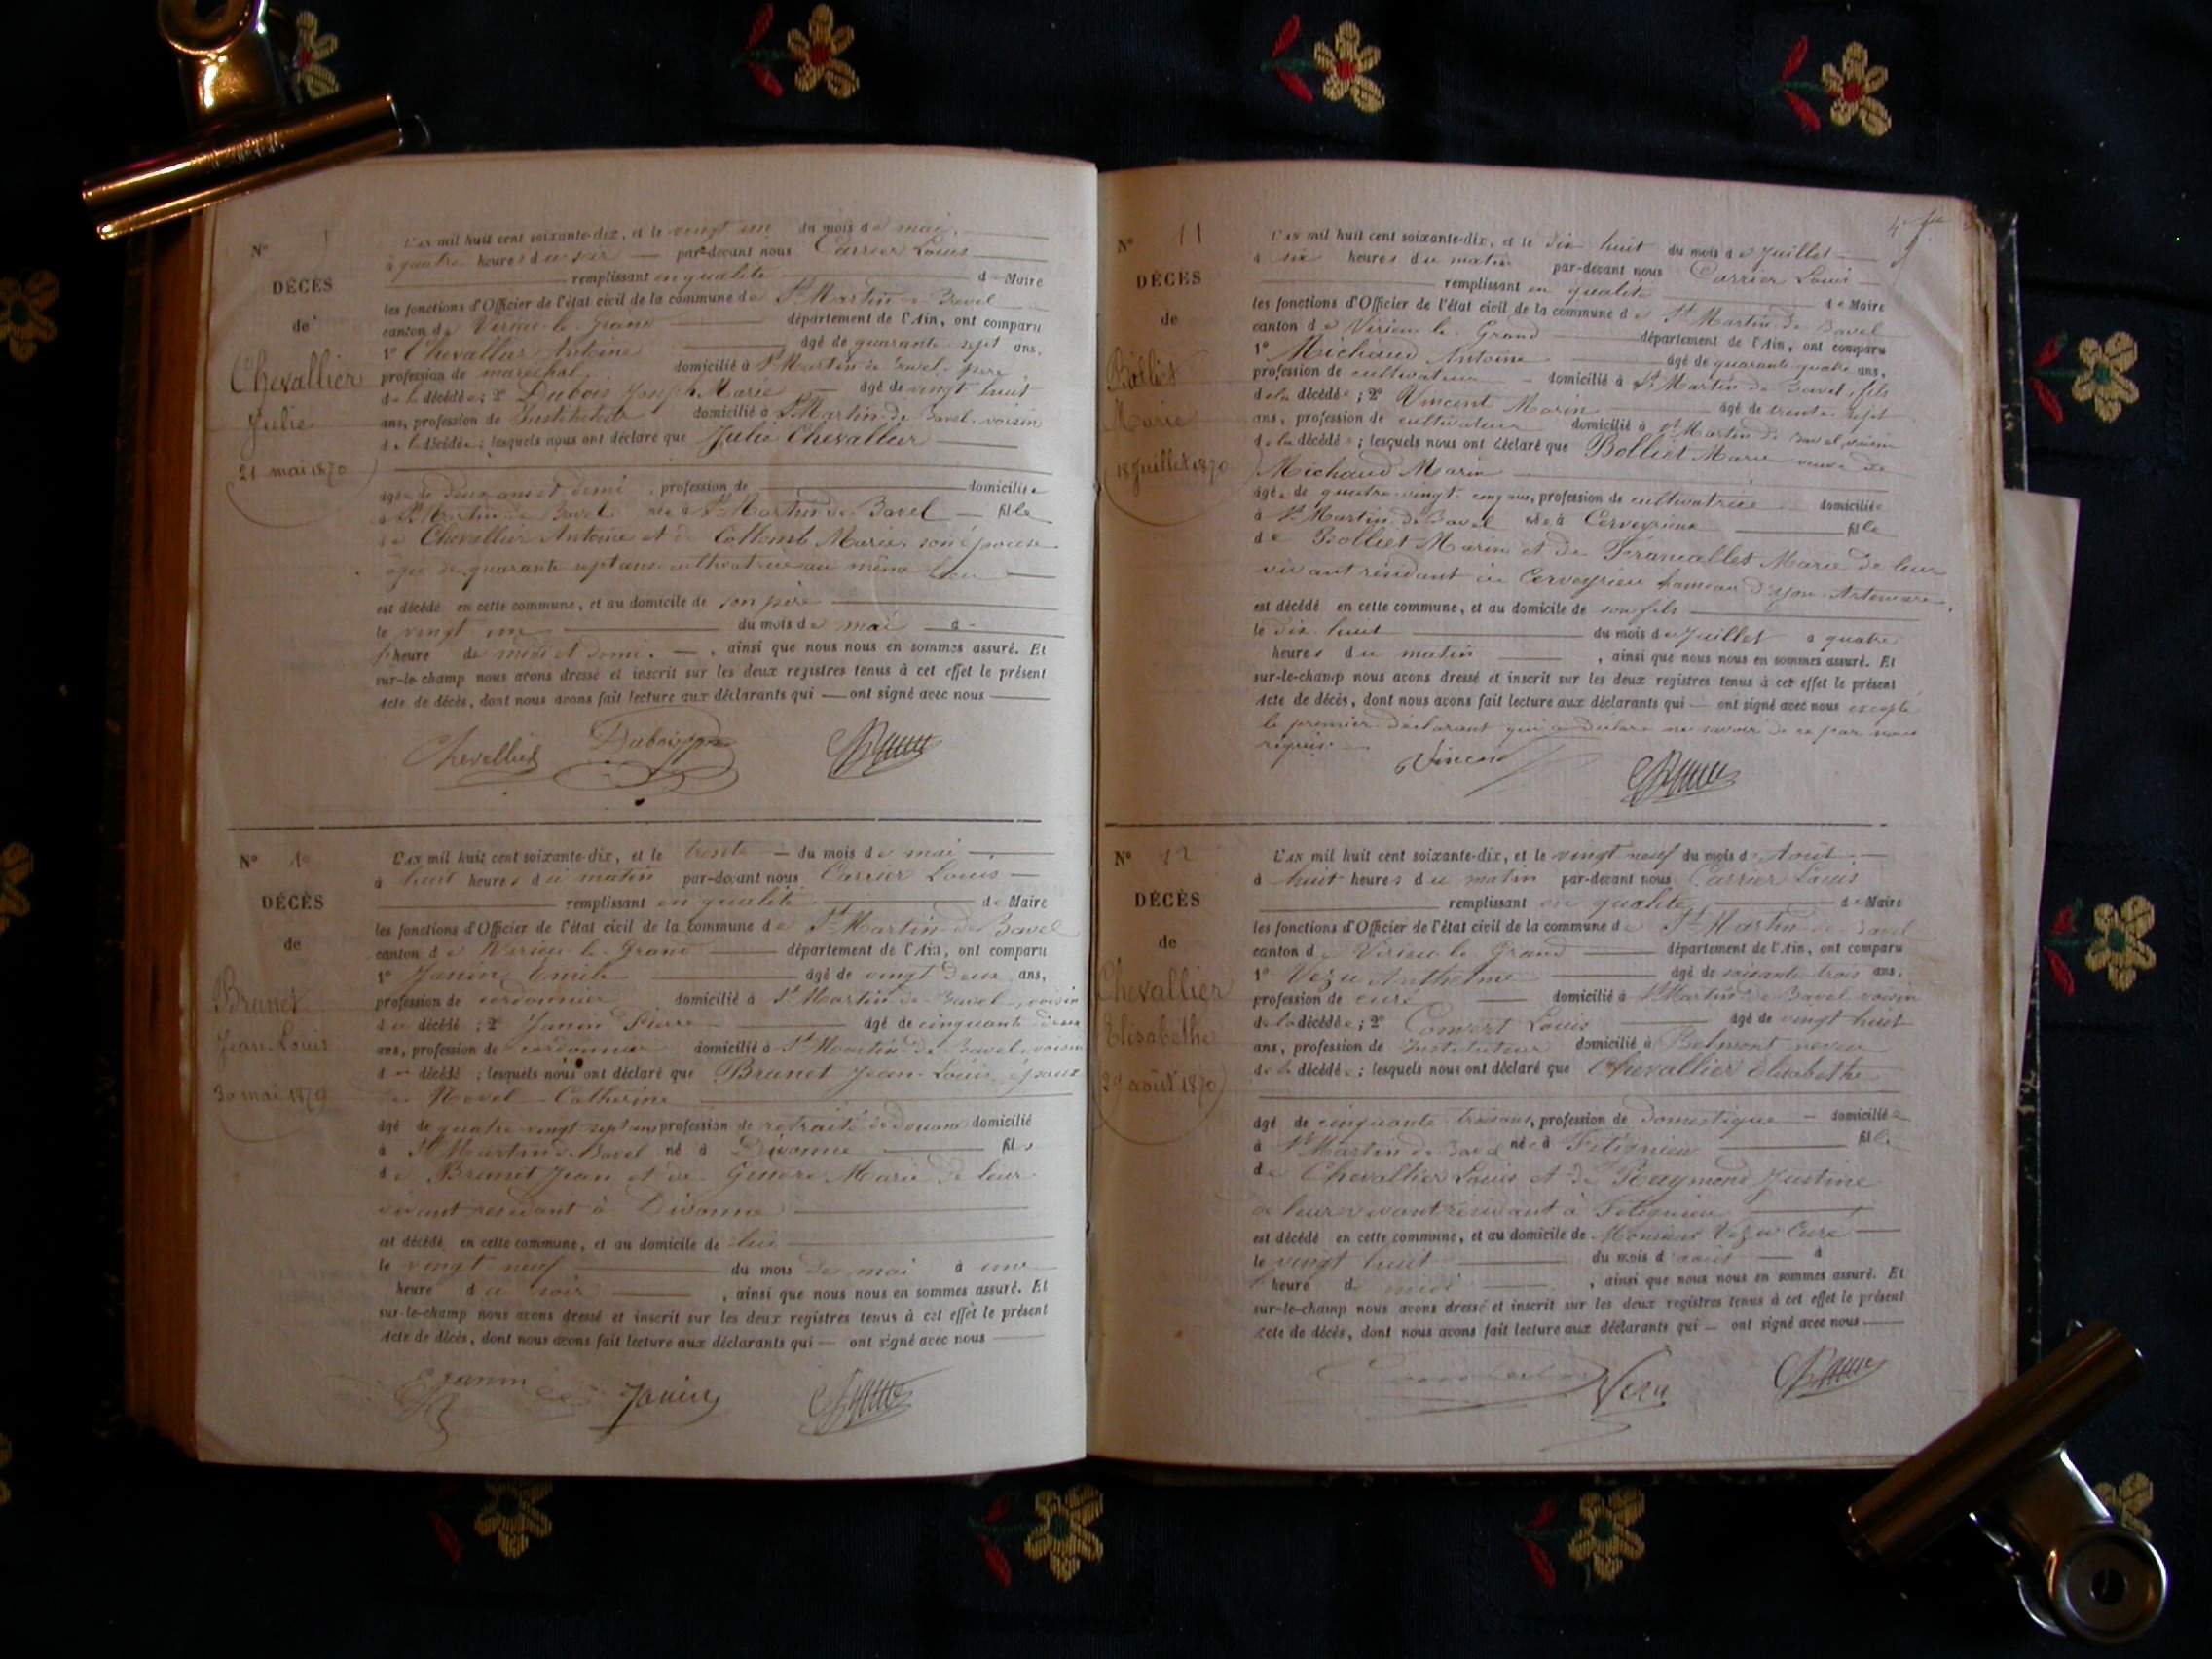 N°
DÉCÈS
de
Chevallier
Julie
21 mai 1870
L'an mil huit cent soixante-dix, et le vingt un du mois de mai
à quatre heures du soir — par-devant nous Carrier Louis
remplissant en qualité de Maire
les fonctions d'Officier de l'état civil de la commune de St Martin de Bavel
canton de Virieu le Grand département de l'Ain, ont comparu
1° Chevallier Antoine âgé de quarante sept ans,
profession de maréchal domicilié à St Martin de Bavel, père
de la décédée ; 2° Dubois Joseph Marie — âgé de vingt huit
ans, profession de Instituteur domicilié à St Martin de Bavel, voisin
de la décédée ; lesquels nous ont déclaré que Julie Chevallier
âgée de deux ans et demi , profession de domiciliée
à St Martin de Bavel née à St Martin de Bavel — fille
de Chevallier Antoine et de Collomb Marie, son épouse
âgée de quarante sept ans cultivatrice au même lieu
est décédé en cette commune, et au domicile de son père
le vingt un du mois de mai à
heure de midi et demi. — , ainsi que nous nous en sommes assuré. Et
sur-le-champ nous avons dressé et inscrit sur les deux registres tenus à cet effet le présent
Acte de décès, dont nous avons fait lecture aux déclarants qui — ont signé avec nous
Chevallier Dubois
N° 10
DÉCÈS
de
Brunet
Jean-Louis
30 mai 1870
L'an mil huit cent soixante-dix, et le trente — du mois de mai
à huit heures du matin par-devant nous Carrier Louis
remplissant en qualité de Maire
les fonctions d'Officier de l'état civil de la commune de St Martin de Bavel
canton de Virieu le Grand département de l'Ain, ont comparu
1° Janin Emile âgé de vingt deux ans,
profession de cordonnier domicilié à St Martin de Bavel, voisin
du décédé ; 2° Janin Pierre âgé de cinquante deux
ans, profession de cordonnier domicilié à St Martin de Bavel, voisin
du décédé ; lesquels nous ont déclaré que Brunet Jean-Louis, époux
de Catherine
âgé de quatre vingt sept ans profession de retraité de Douane domicilié
à St Martin de Bavel né à Divonne fils
de Brunet Jean et de Marie de leur
vivant résidant à Divonne
est décédé en cette commune, et au domicile de lui
le vingt neuf du mois de mai à une
heure du soir , ainsi que nous nous en sommes assuré. Et
sur-le-champ nous avons dressé et inscrit sur les deux registres tenus à cet effet le présent
Acte de décès, dont nous avons fait lecture aux déclarants qui — ont signé avec nous
E Janin Janin
N° 11
DÉCÈS
de
Bolliet
Marie
18 Juillet 1870
L'an mil huit cent soixante-dix, et le dix huit du mois de Juillet
à six heures du matin par-devant nous Carrier Louis
remplissant en qualité de Maire
les fonctions d'Officier de l'état civil de la commune de St Martin de Bavel
canton de Virieu le Grand département de l'Ain, ont comparu
1° Michaud Antoine âgé de quarante quatre ans,
profession de cultivateur — domicilié à St Martin de Bavel, fils
de la décédée ; 2° Vincent Marin âgé de trente sept
ans, profession de cultivateur domicilié à St Martin de Bavel, voisin
de la décédée ; lesquels nous ont déclaré que Bolliet Marie veuve de
Michaud Marin
âgée de quatre-vingt cinq ans, profession de cultivatrice domiciliée
à St Martin de Bavel née à Cerveyrieu fille
de Bolliet Marin et de Marie de leur
vivant résidant à Cerveyrieu hameau d'Yon-Artemare,
est décédé en cette commune, et au domicile de son fils
le dix huit du mois de Juillet à quatre
heures du matin , ainsi que nous nous en sommes assuré. Et
sur-le-champ nous avons dressé et inscrit sur les deux registres tenus à cet effet le présent
Acte de décès, dont nous avons fait lecture aux déclarants qui — ont signé avec nous excepté
le premier déclarant qui a déclaré ne savoir de ce par nous
requis.
Vincent
N° 12
DÉCÈS
de
Chevallier
Elisabethe
29 août 1870
L'an mil huit cent soixante-dix, et le vingt neuf du mois d'Août
à huit heures du matin par-devant nous Carrier Louis
remplissant en qualité de Maire
les fonctions d'Officier de l'état civil de la commune de St Martin de Bavel
canton de Virieu le Grand département de l'Ain, ont comparu
1° Vezu Anthelme âgé de soixante trois ans,
profession de curé domicilié à St Martin de Bavel voisin
de la décédée ; 2° Convert Louis âgé de vingt huit
ans, profession de Instituteur domicilié à Belmont neveu
de la décédée ; lesquels nous ont déclaré que Chevallier Elisabethe
âgé de cinquante trois ans, profession de domestique — domiciliée
à St Martin de Bavel née à Fitignieu fille
de Chevallier Louis et de Raymond Justine
de leur vivant résidant à Fitignieu
est décédé en cette commune, et au domicile de Monsieur Vezu Curé
le vingt huit du mois d'août à
heure de midi , ainsi que nous nous en sommes assuré. Et
sur-le-champ nous avons dressé et inscrit sur les deux registres tenus à cet effet le présent
Acte de décès, dont nous avons fait lecture aux déclarants qui — ont signé avec nous
Vezu